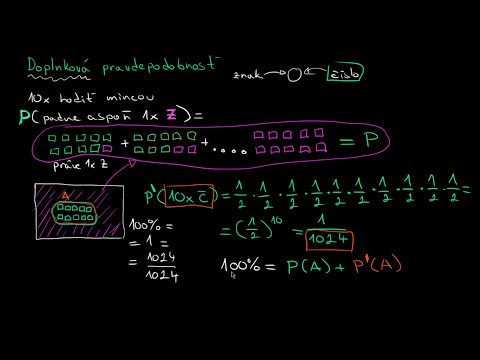 Doplnková pravdepodobnosť
znak
číslo
10x hodiť mincou
P(padne aspoň 1x Z) =
+ + .... = P
práve 1x Z
A
P'(10x č) = 1/2 · 1/2 · 1/2 · 1/2 · 1/2 · 1/2 · 1/2 · 1/2 · 1/2 · 1/2 =
= (1/2)^10 = 1/1024
100% =
= 1 =
= 1024/1024
100% = P(A) + P'(A)